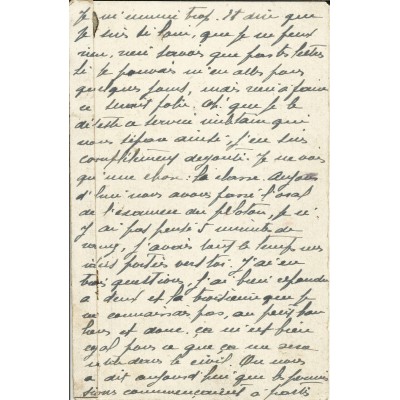 Je m'ennuie trop. Et dire que
je suis si loin, que je ne peux
rien, rien savoir que par tes lettres
Si je pouvais m'en aller pour
quelques jours, mais rien à faire
ce serait folie. Ah! que je le
déteste ce service militaire qui
nous sépare ainsi. J'en suis
complètement dégouté. Je ne vois
qu'une chose: la classe. Aujour
d'hui nous avons passé l'oral
de l'examen du peloton, je n'
y ai pas pensé 5 minutes de
rang, j'avais tout le temps mes
idées portées vers toi. J'ai eu
trois questions, j'ai bien répondu
à deux et la troisième que je
ne connaissais pas, au petit bon
heur et donc, ça m'est bien
égal pour ce que ça me sera
utile dans le civil. On nous
a dit aujourd'hui que les permis
sions commençaient à partir